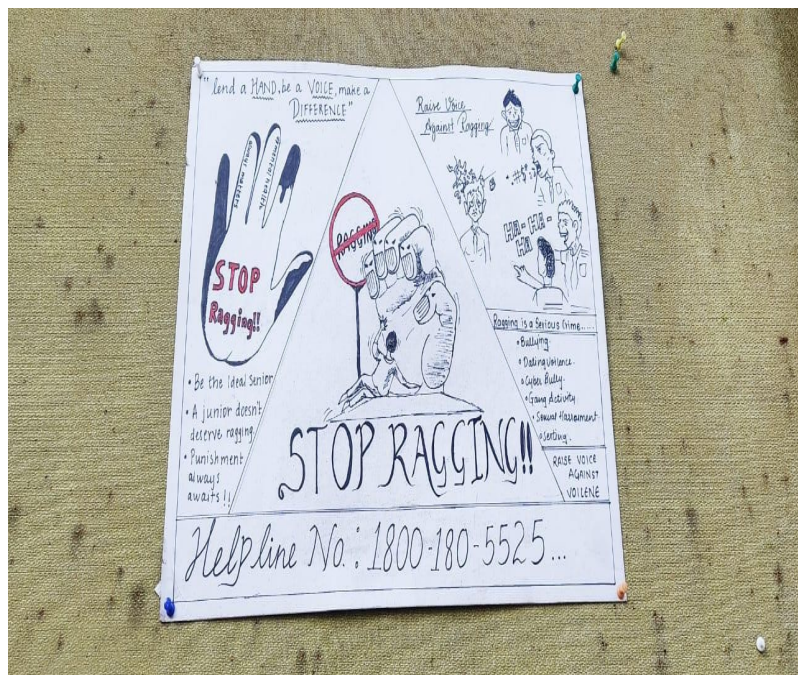 "lend a HAND, be a VOICE, make a
DIFFERENCE"
always matters
#mental health
STOP
Ragging!!
• Be the Ideal Senior
• A junior doesn't
deserve ragging
• Punishment
always
awaits!!
RAGGING
STOP RAGGING!!
Raise Voice
Against Ragging
HA-HA-
HA
Ragging is a Serious Crime.....
• Bullying
• Dating voilence
• Cyber Bully
• Gang Activity
• Sexual Harrasment
• Sexting
RAISE VOICE
AGAINST
VOILENE
Helpline No.: 1800-180-5525...